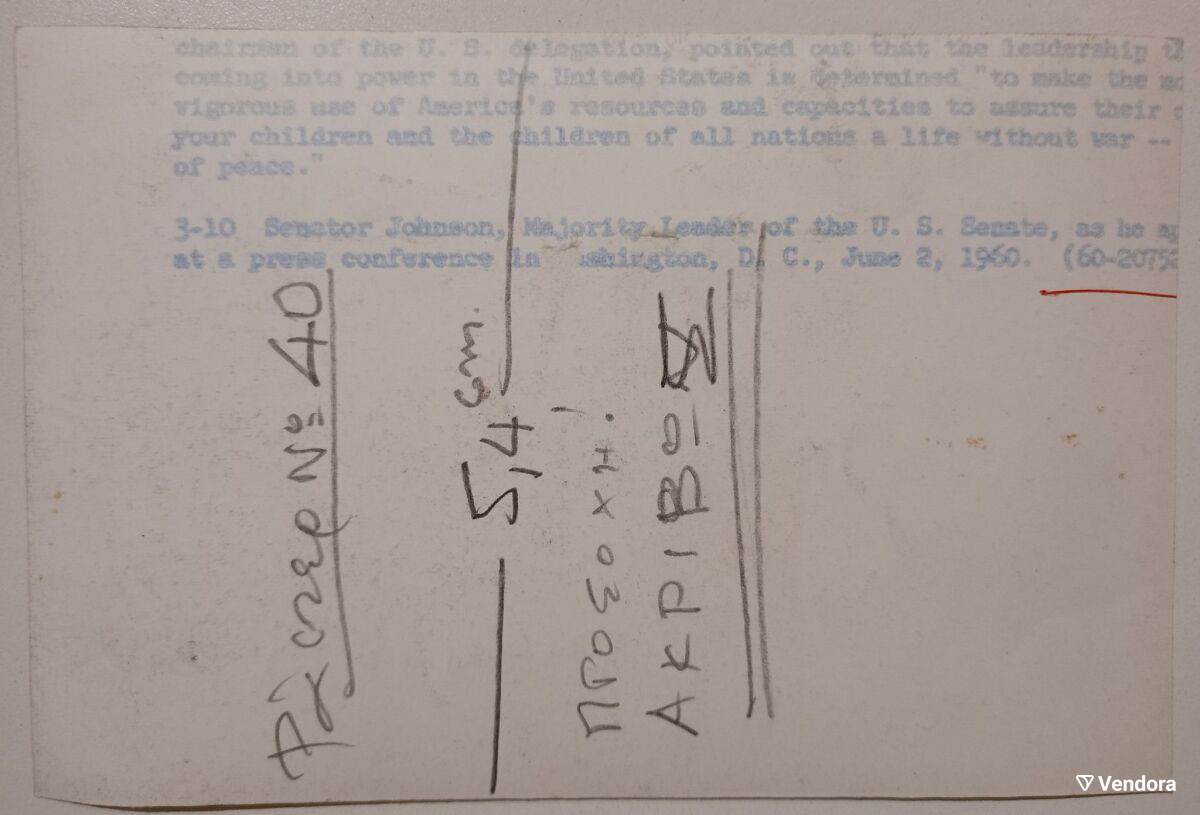 chairman of the U. S. delegation, pointed out that the leadership
coming into power in the United States is determined "to make the
vigorous use of America's resources and capacities to assure their
your children and the children of all nations a life without war --
of peace."
3-10 Senator Johnson, Majority Leader of the U. S. Senate, as he
at a press conference in Washington, D. C., June 2, 1960. (60-20752
Nº 40
5,4 cm.
ΠΡΟΣΟΧΗ!
ΑΚΡΙΒΩΣ
Vendora